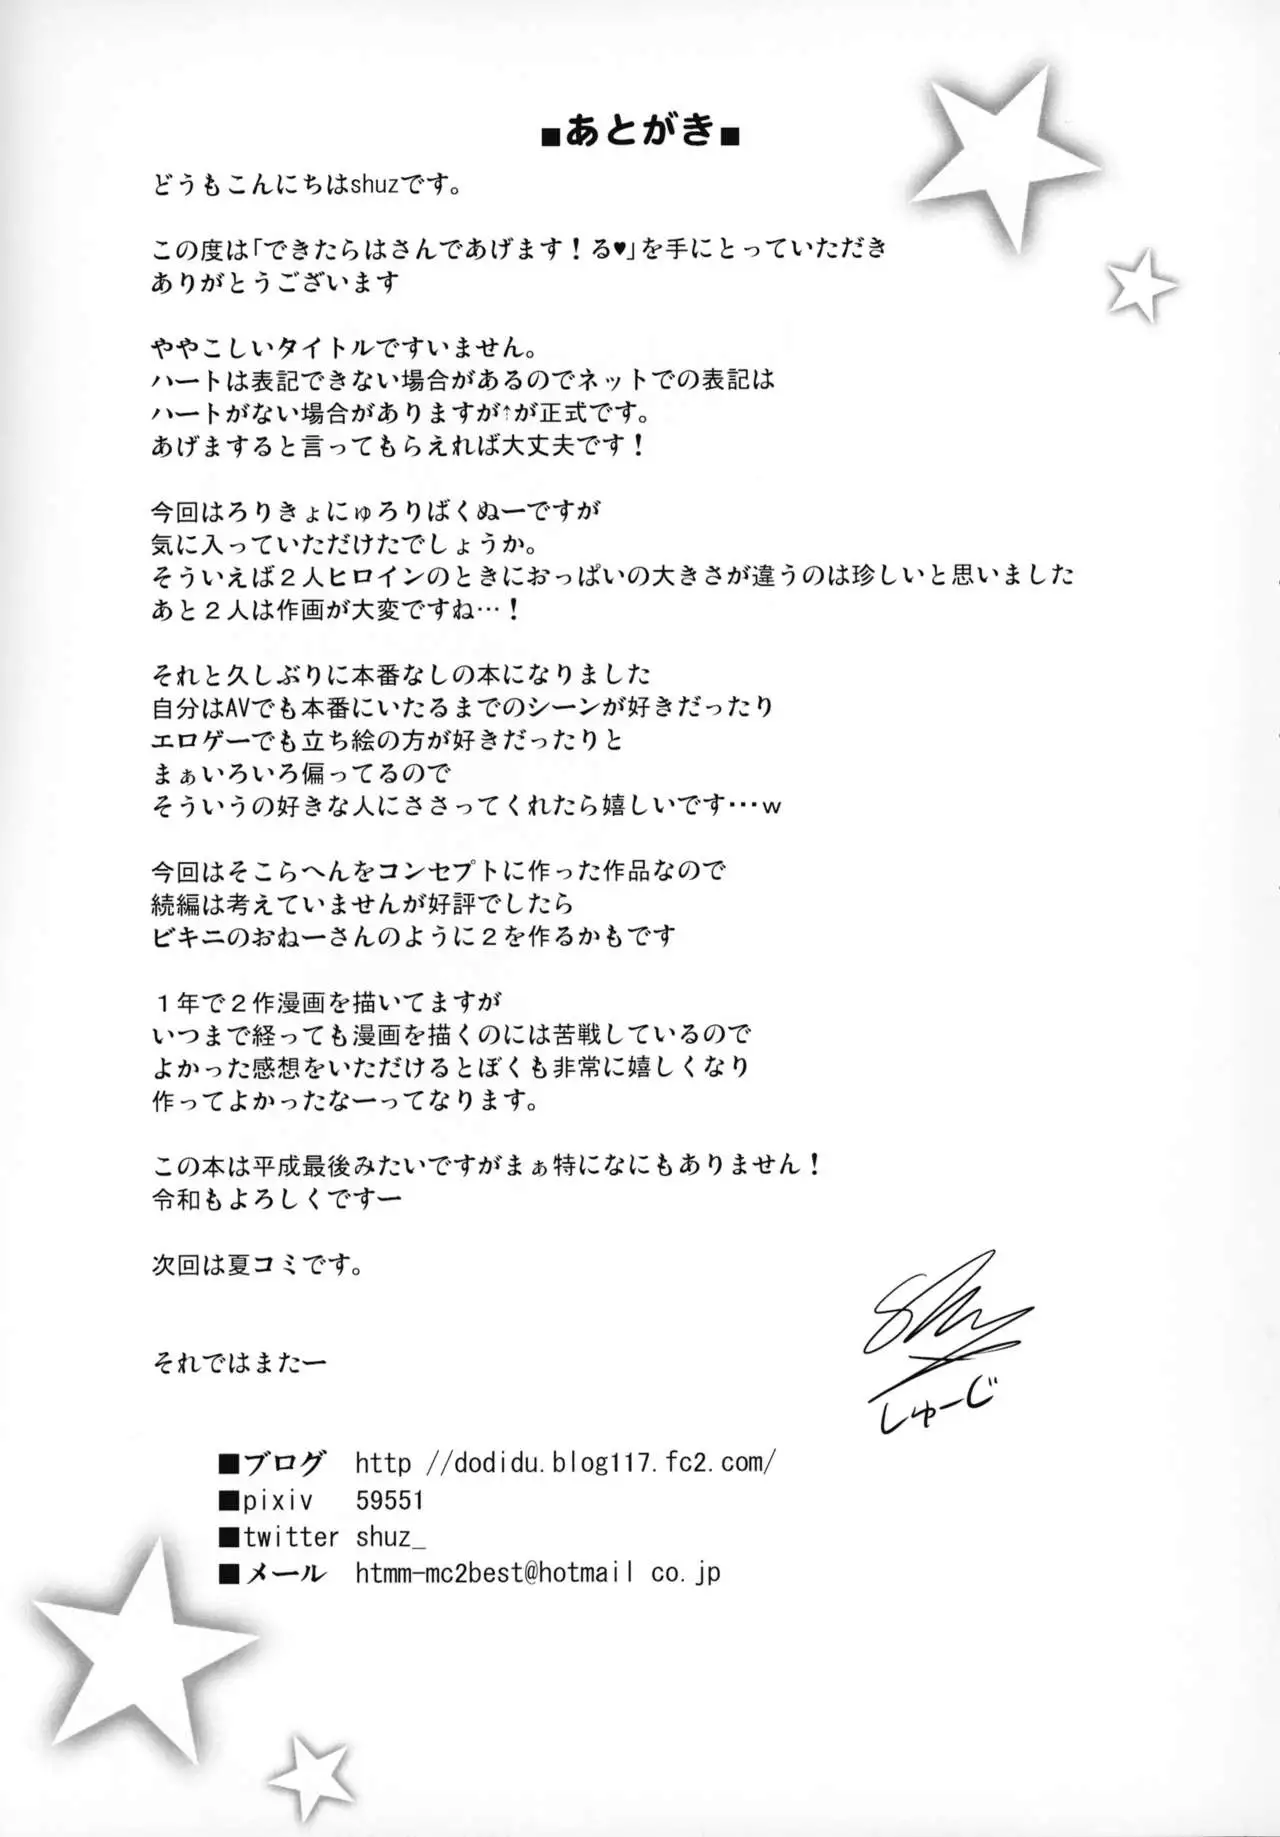 ■あとがき■
どうもこんにちはshuzです。
この度は「できたらはさんであげます！る♥」を手にとっていただき
ありがとうございます
ややこしいタイトルですいません。
ハートは表記できない場合があるのでネットでの表記は
ハートがない場合がありますが↑が正式です。
あげますると言ってもらえれば大丈夫です！
今回はろりきょにゅろりばくぬーですが
気に入っていただけたでしょうか。
そういえば２人ヒロインのときにおっぱいの大きさが違うのは珍しいと思いました
あと２人は作画が大変ですね…！
それと久しぶりに本番なしの本になりました
自分はAVでも本番にいたるまでのシーンが好きだったり
エロゲーでも立ち絵の方が好きだったりと
まぁいろいろ偏ってるので
そういうの好きな人にささってくれたら嬉しいです…ｗ
今回はそこらへんをコンセプトに作った作品なので
続編は考えていませんが好評でしたら
ビキニのおねーさんのように２を作るかもです
１年で２作漫画を描いてますが
いつまで経っても漫画を描くのには苦戦しているので
よかった感想をいただけるとぼくも非常に嬉しくなり
作ってよかったなーってなります。
この本は平成最後みたいですがまぁ特になにもありません！
令和もよろしくですー
次回は夏コミです。
それではまたー
しゅーじ
■ブログ http //dodidu.blog117.fc2.com/
■pixiv 59551
■twitter shuz_
■メール htmm-mc2best@hotmail co.jp